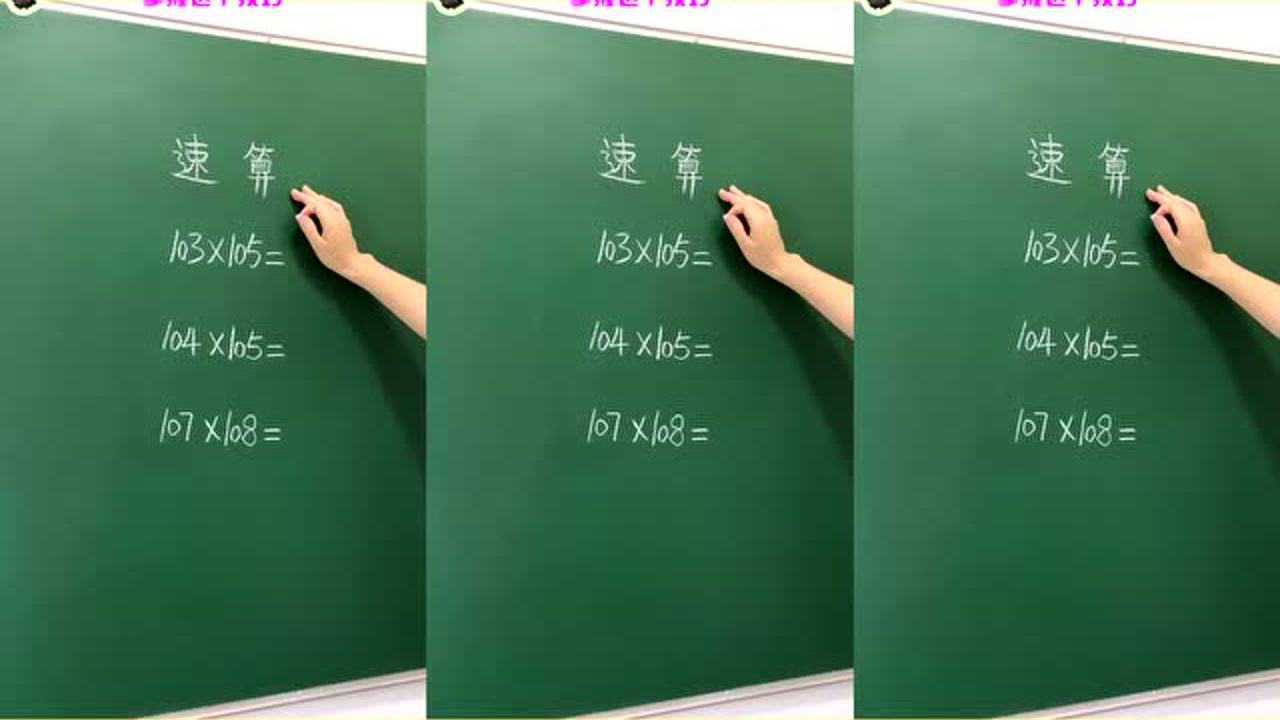 速 算
103×105=
104×105=
107×108=
速 算
103×105=
104×105=
107×108=
速 算
103×105=
104×105=
107×108=